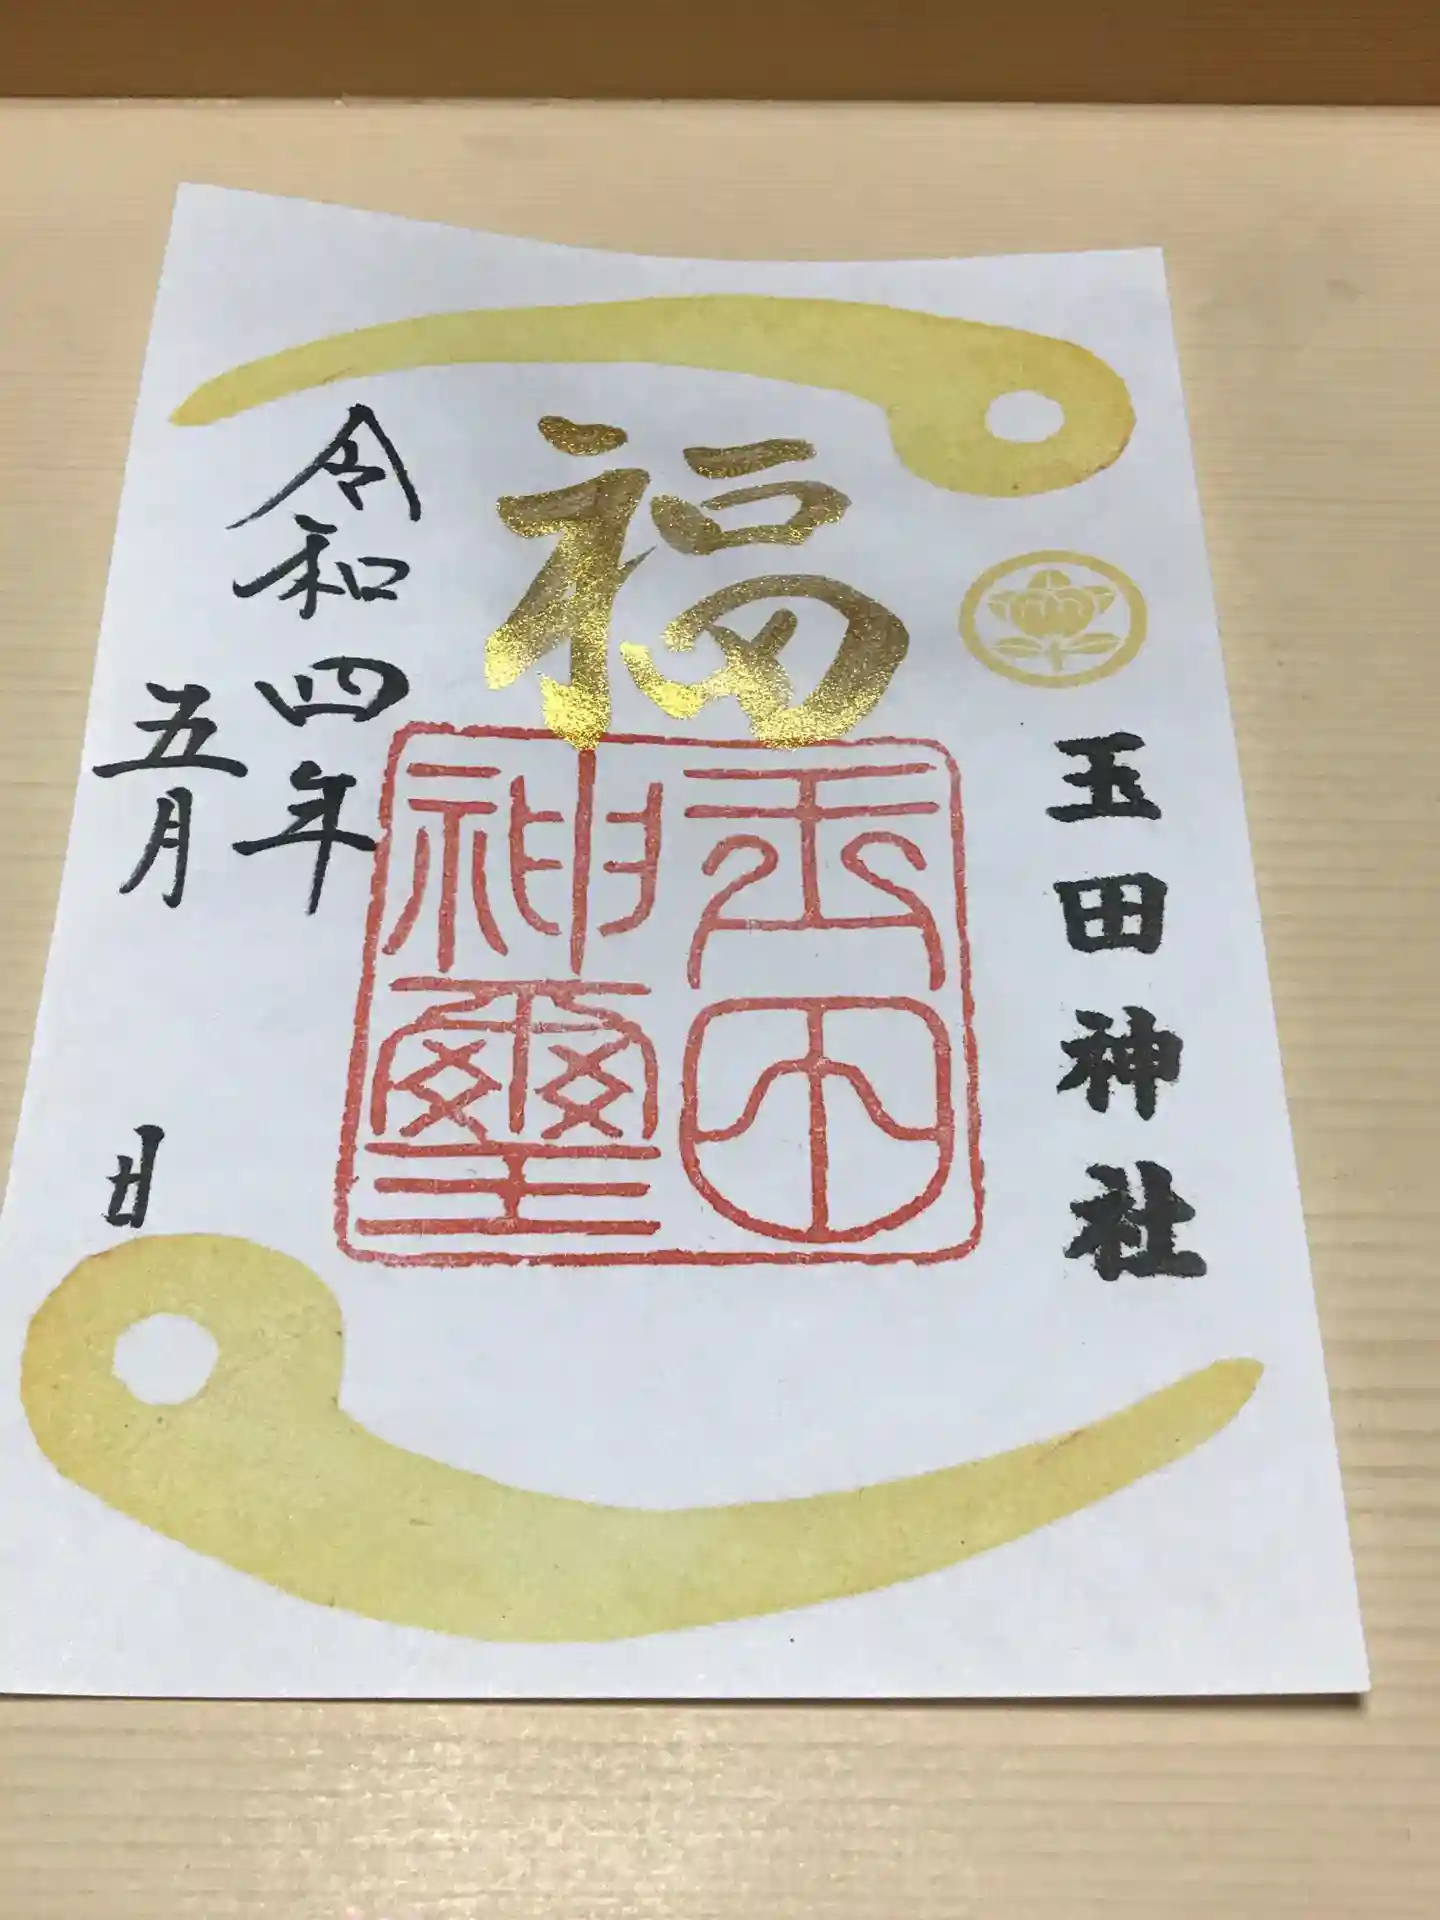 玉田神社
福
玉田
神璽
令和四年
五月　日